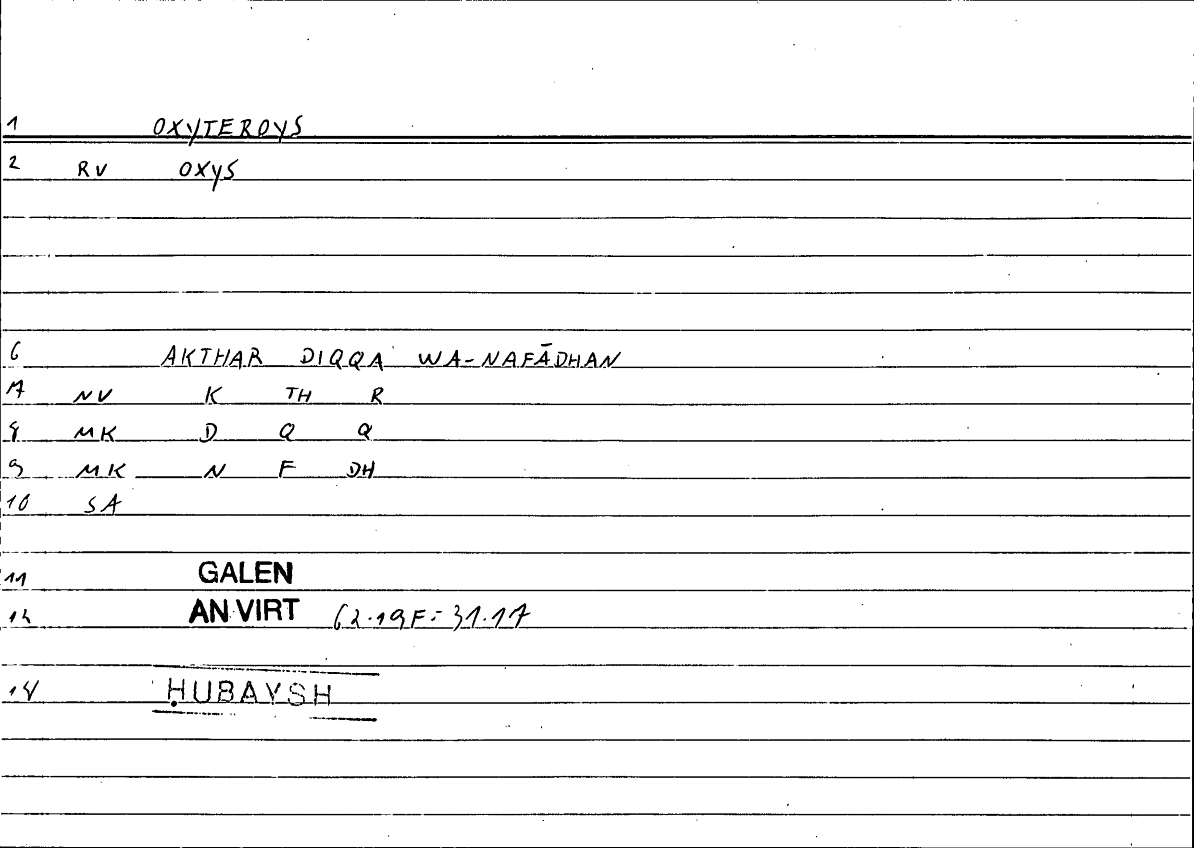 1 OXYTEROYS
2 RV OXYS
6 AKTHAR DIQQA WA-NAFĀDHAN
7 NV K TH R
8 MK D Q Q
9 MK N F DH
10 SA
11 GALEN
12 AN VIRT 62.19F = 31.17
14 ḤUBAYSH